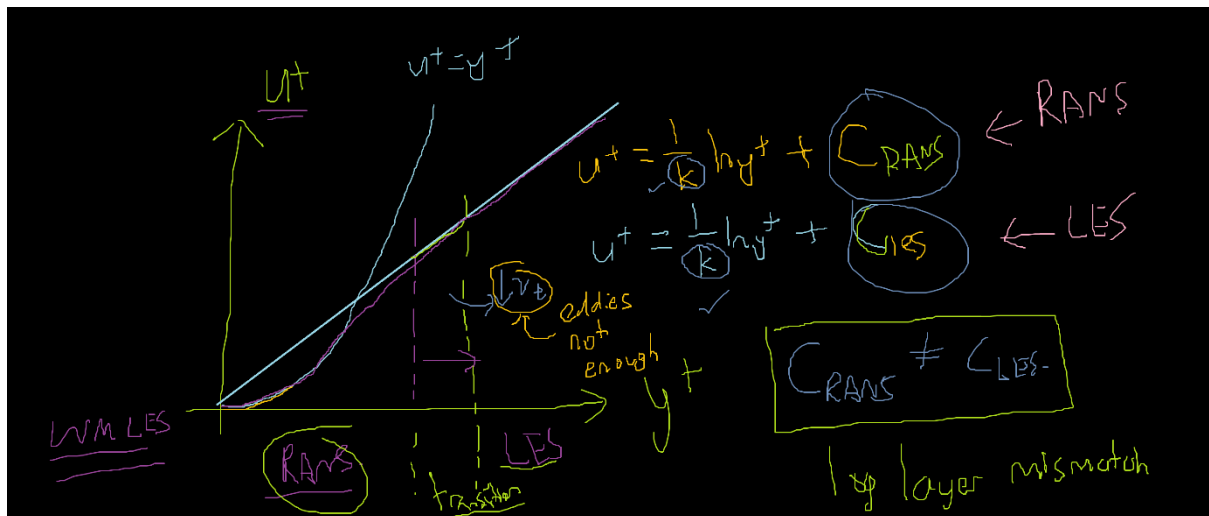 u⁺ = y⁺
U⁺
u⁺ = 1/k ln y⁺ + C_RANS ← RANS
u⁺ = 1/k ln y⁺ + C_les ← LES
↓ν_t eddies
not
enough
y⁺
C_RANS ≠ C_LES
WMLES
RANS
LES
transition
log layer mismatch